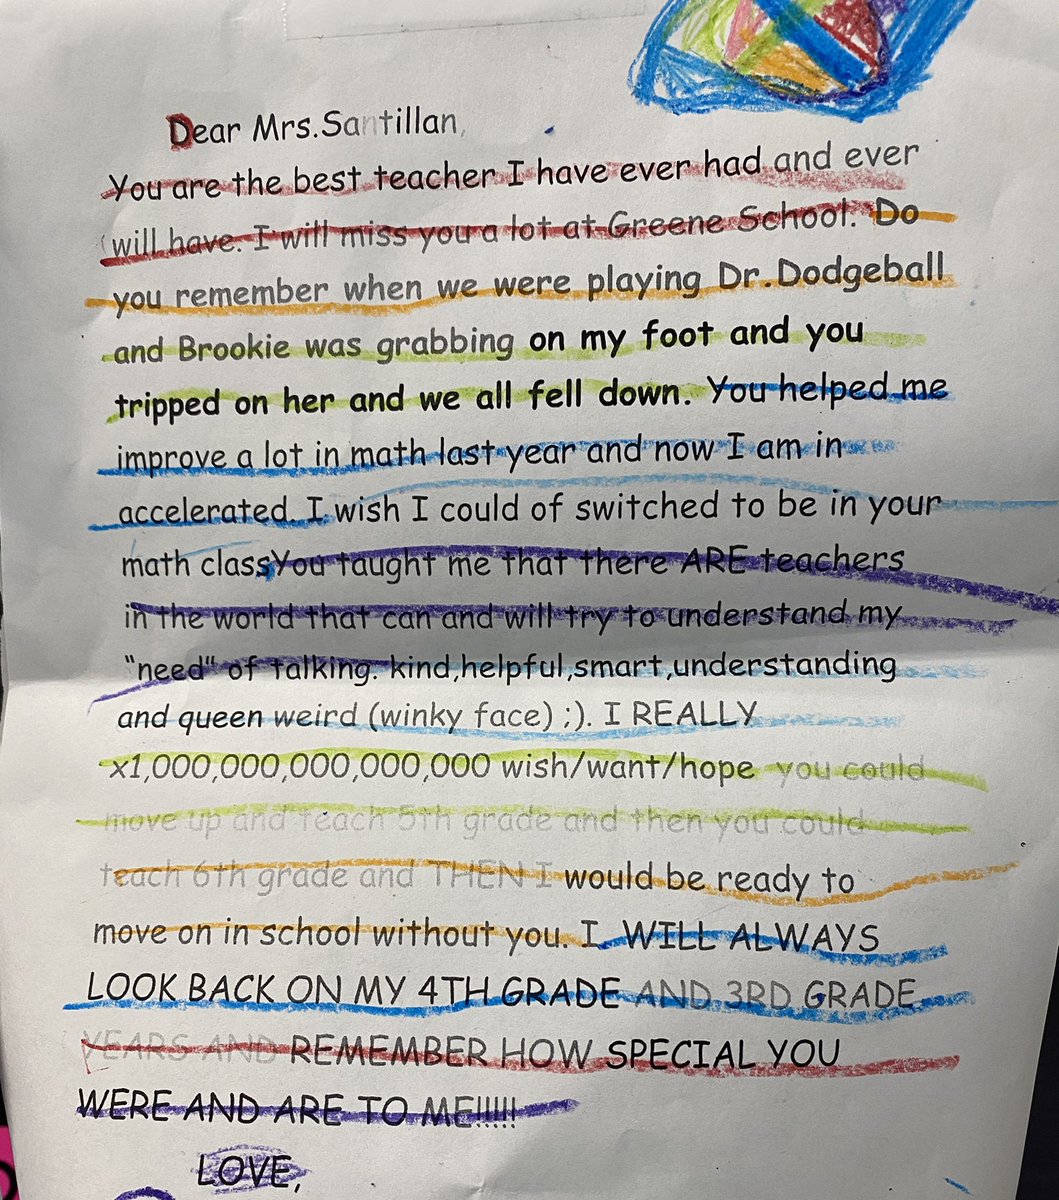 Dear Mrs.Santillan,
You are the best teacher I have ever had and ever
will have. I will miss you a lot at Greene School. Do
you remember when we were playing Dr.Dodgeball
and Brookie was grabbing on my foot and you
tripped on her and we all fell down. You helped me
improve a lot in math last year and now I am in
accelerated. I wish I could of switched to be in your
math classYou taught me that there ARE teachers
in the world that can and will try to understand my
"need" of talking. kind,helpful,smart,understanding
and queen weird (winky face) ;). I REALLY
x1,000,000,000,000,000 wish/want/hope you could
move up and teach 5th grade and then you could
teach 6th grade and THEN I would be ready to
move on in school without you. I WILL ALWAYS
LOOK BACK ON MY 4TH GRADE AND 3RD GRADE
YEARS AND REMEMBER HOW SPECIAL YOU
WERE AND ARE TO ME!!!!!
LOVE,